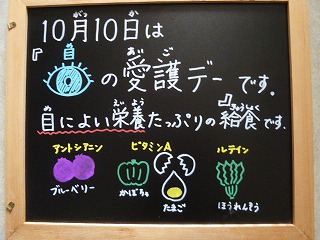 10月10日は
『目の愛護デー』です。
目によい栄養たっぷりの給食です。
アントシアニン ビタミンA ルテイン
ブルーベリー かぼちゃ たまご ほうれんそう